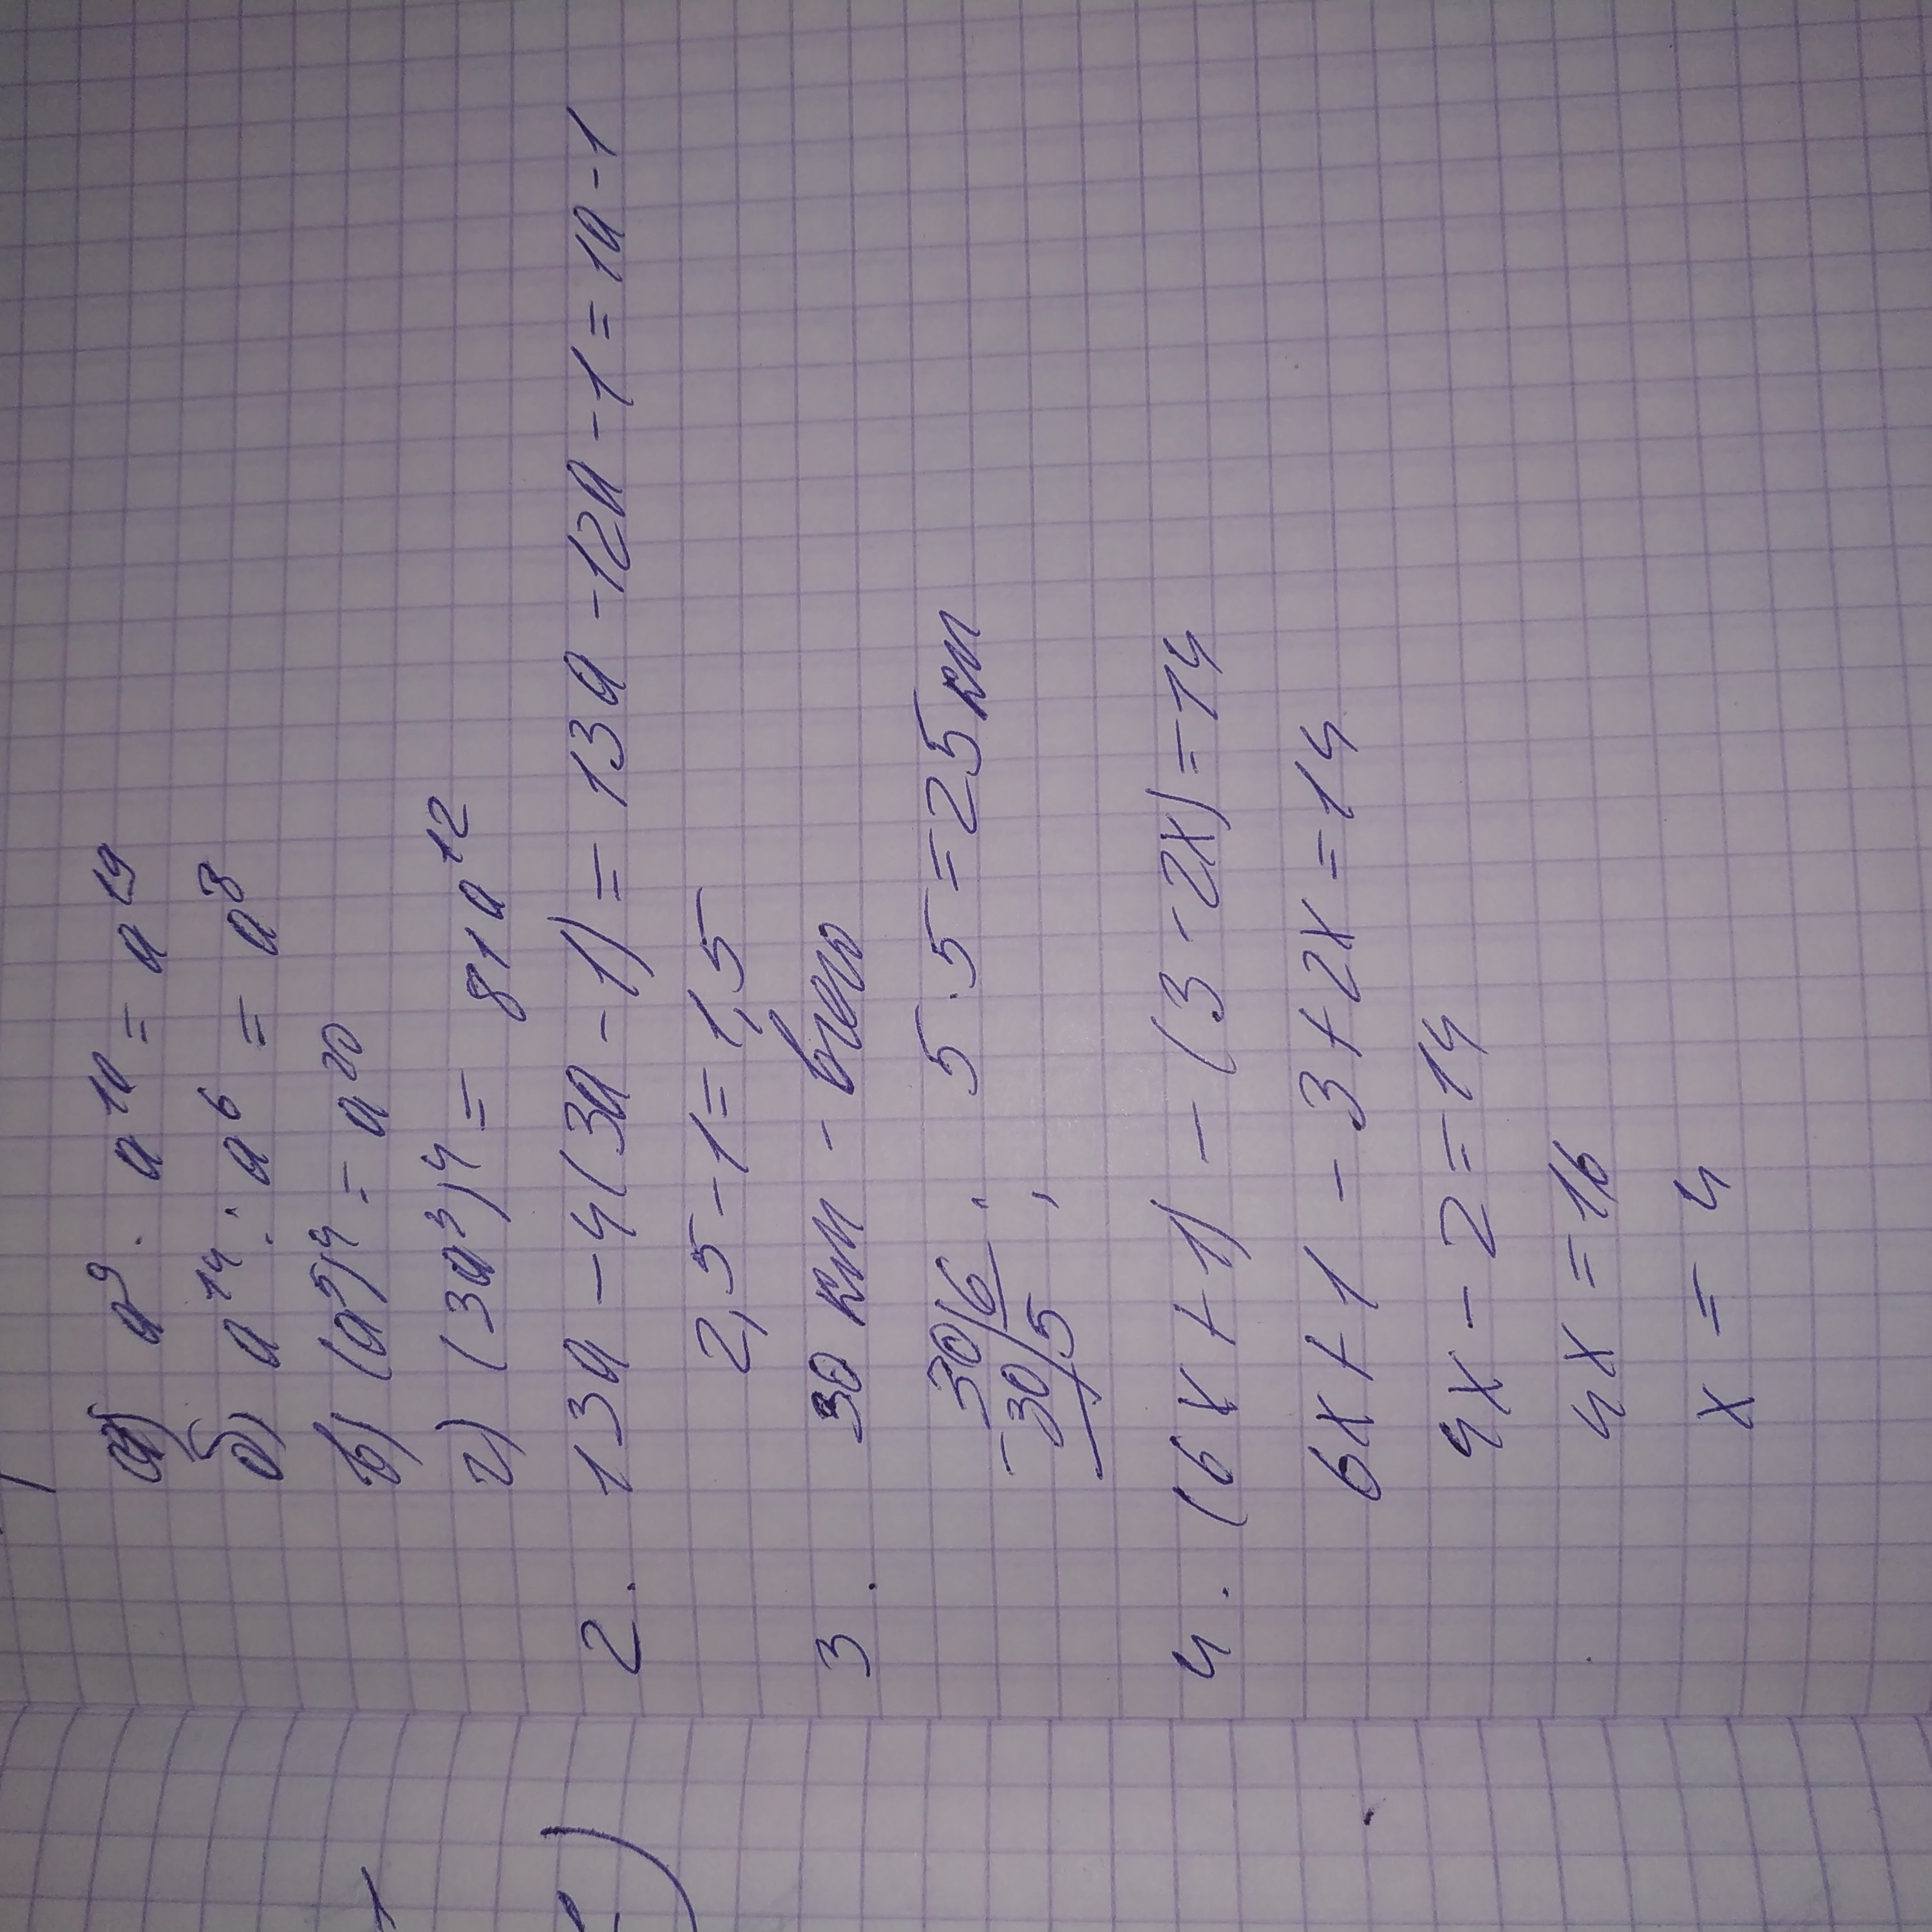 а) a⁹ · a¹⁰ = a¹⁹
б) a¹⁴ : a⁶ = a⁸
в) (a⁵)⁴ = a²⁰
г) (3a³)⁴ = 81a¹²
2. 13a - 4(3a - 1) = 13a - 12a - 1 = 1a - 1
2,5 - 1 = 1,5
3. 30 км - всего
30 6 , 5 · 5 = 25 км
-30 5 ,
4. (6x + 1) - (3 - 2x) = 14
6x + 1 - 3 + 2x = 14
4x - 2 = 14
4x = 16
x = 4